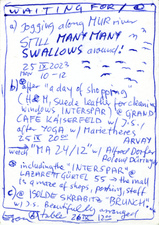 WAITING FOR
a) Jogging along MUR river
STILL MANY MANY
SWALLOWS around!
25 IX 2023
10-12
b) after "a day of shopping"
(H & M, Suede leather for cleaning
windows INTERSPAR) @ GRAND
CAFE KAISERFELD w/ J.S./
after YOGA w/ Marie Theres
25 IX 20 00 ARVAY
watch "MA 24/12" w/ Alfred Dorfer
@ including the "INTERSPAR" @
LAZARETTGÜRTEL 55 → the mall
is a maze of shops, parking, stuff
c) @ ISOLDE SKRABITZ "BRUNCH"
w/ J.S. Beautifully arranged
table 26 IX 12 00